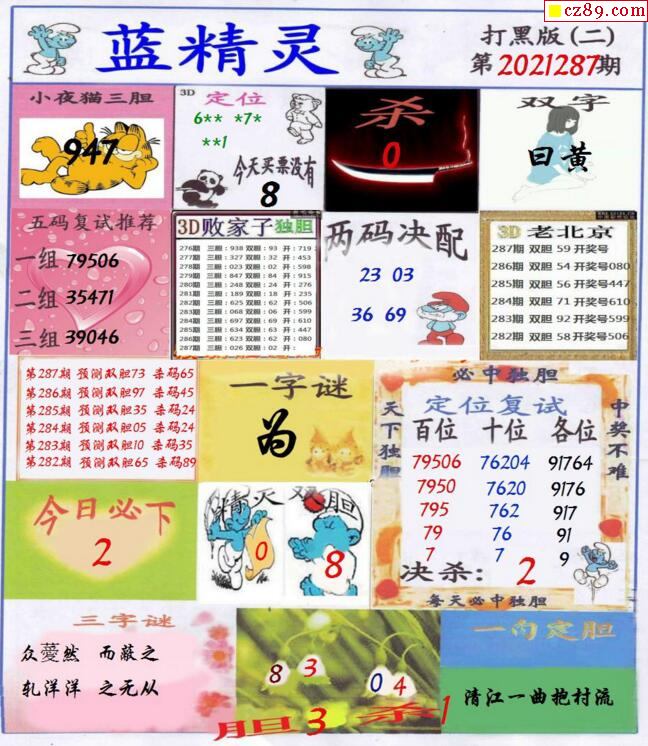 cz89.com
蓝精灵
打黑版(二)
第2021287期
小夜猫三胆
947
3D 定位
6** *7*
**1
今天买票没有
8
杀
0
双字
曰黄
五码复试推荐
一组 79506
二组 35471
三组 39046
3D败家子独胆
276期 三胆:938 双胆:93 开:719
277期 三胆:327 双胆:32 开:453
278期 三胆:023 双胆:02 开:598
279期 三胆:847 双胆:84 开:915
280期 三胆:248 双胆:24 开:276
281期 三胆:189 双胆:18 开:235
282期 三胆:625 双胆:62 开:506
283期 三胆:068 双胆:06 开:599
284期 三胆:697 双胆:69 开:610
285期 三胆:634 双胆:63 开:447
286期 三胆:623 双胆:62 开:080
287期 三胆:026 双胆:02 开:
两码决配
23 03
36 69
3D 老北京
287期 双胆 59 开奖号
286期 双胆 54 开奖号080
285期 双胆 56 开奖号447
284期 双胆 71 开奖号610
283期 双胆 92 开奖号599
282期 双胆 58 开奖号506
第287期 预测双胆73 杀码65
第286期 预测双胆97 杀码45
第285期 预测双胆35 杀码24
第284期 预测双胆05 杀码24
第283期 预测双胆10 杀码35
第282期 预测双胆65 杀码89
一字谜
为
必中独胆
天下独胆
中奖不难
定位复试
百位 十位 各位
79506 76204 91764
7950 7620 9176
795 762 917
79 76 91
7 7 9
决杀: 2
每天必中独胆
今日必下
2
精灵双胆
0
8
三字谜
众薆然 而蔽之
轧洋洋 之无从
8 3
0 4
胆3 杀1
一句定胆
清江一曲抱村流